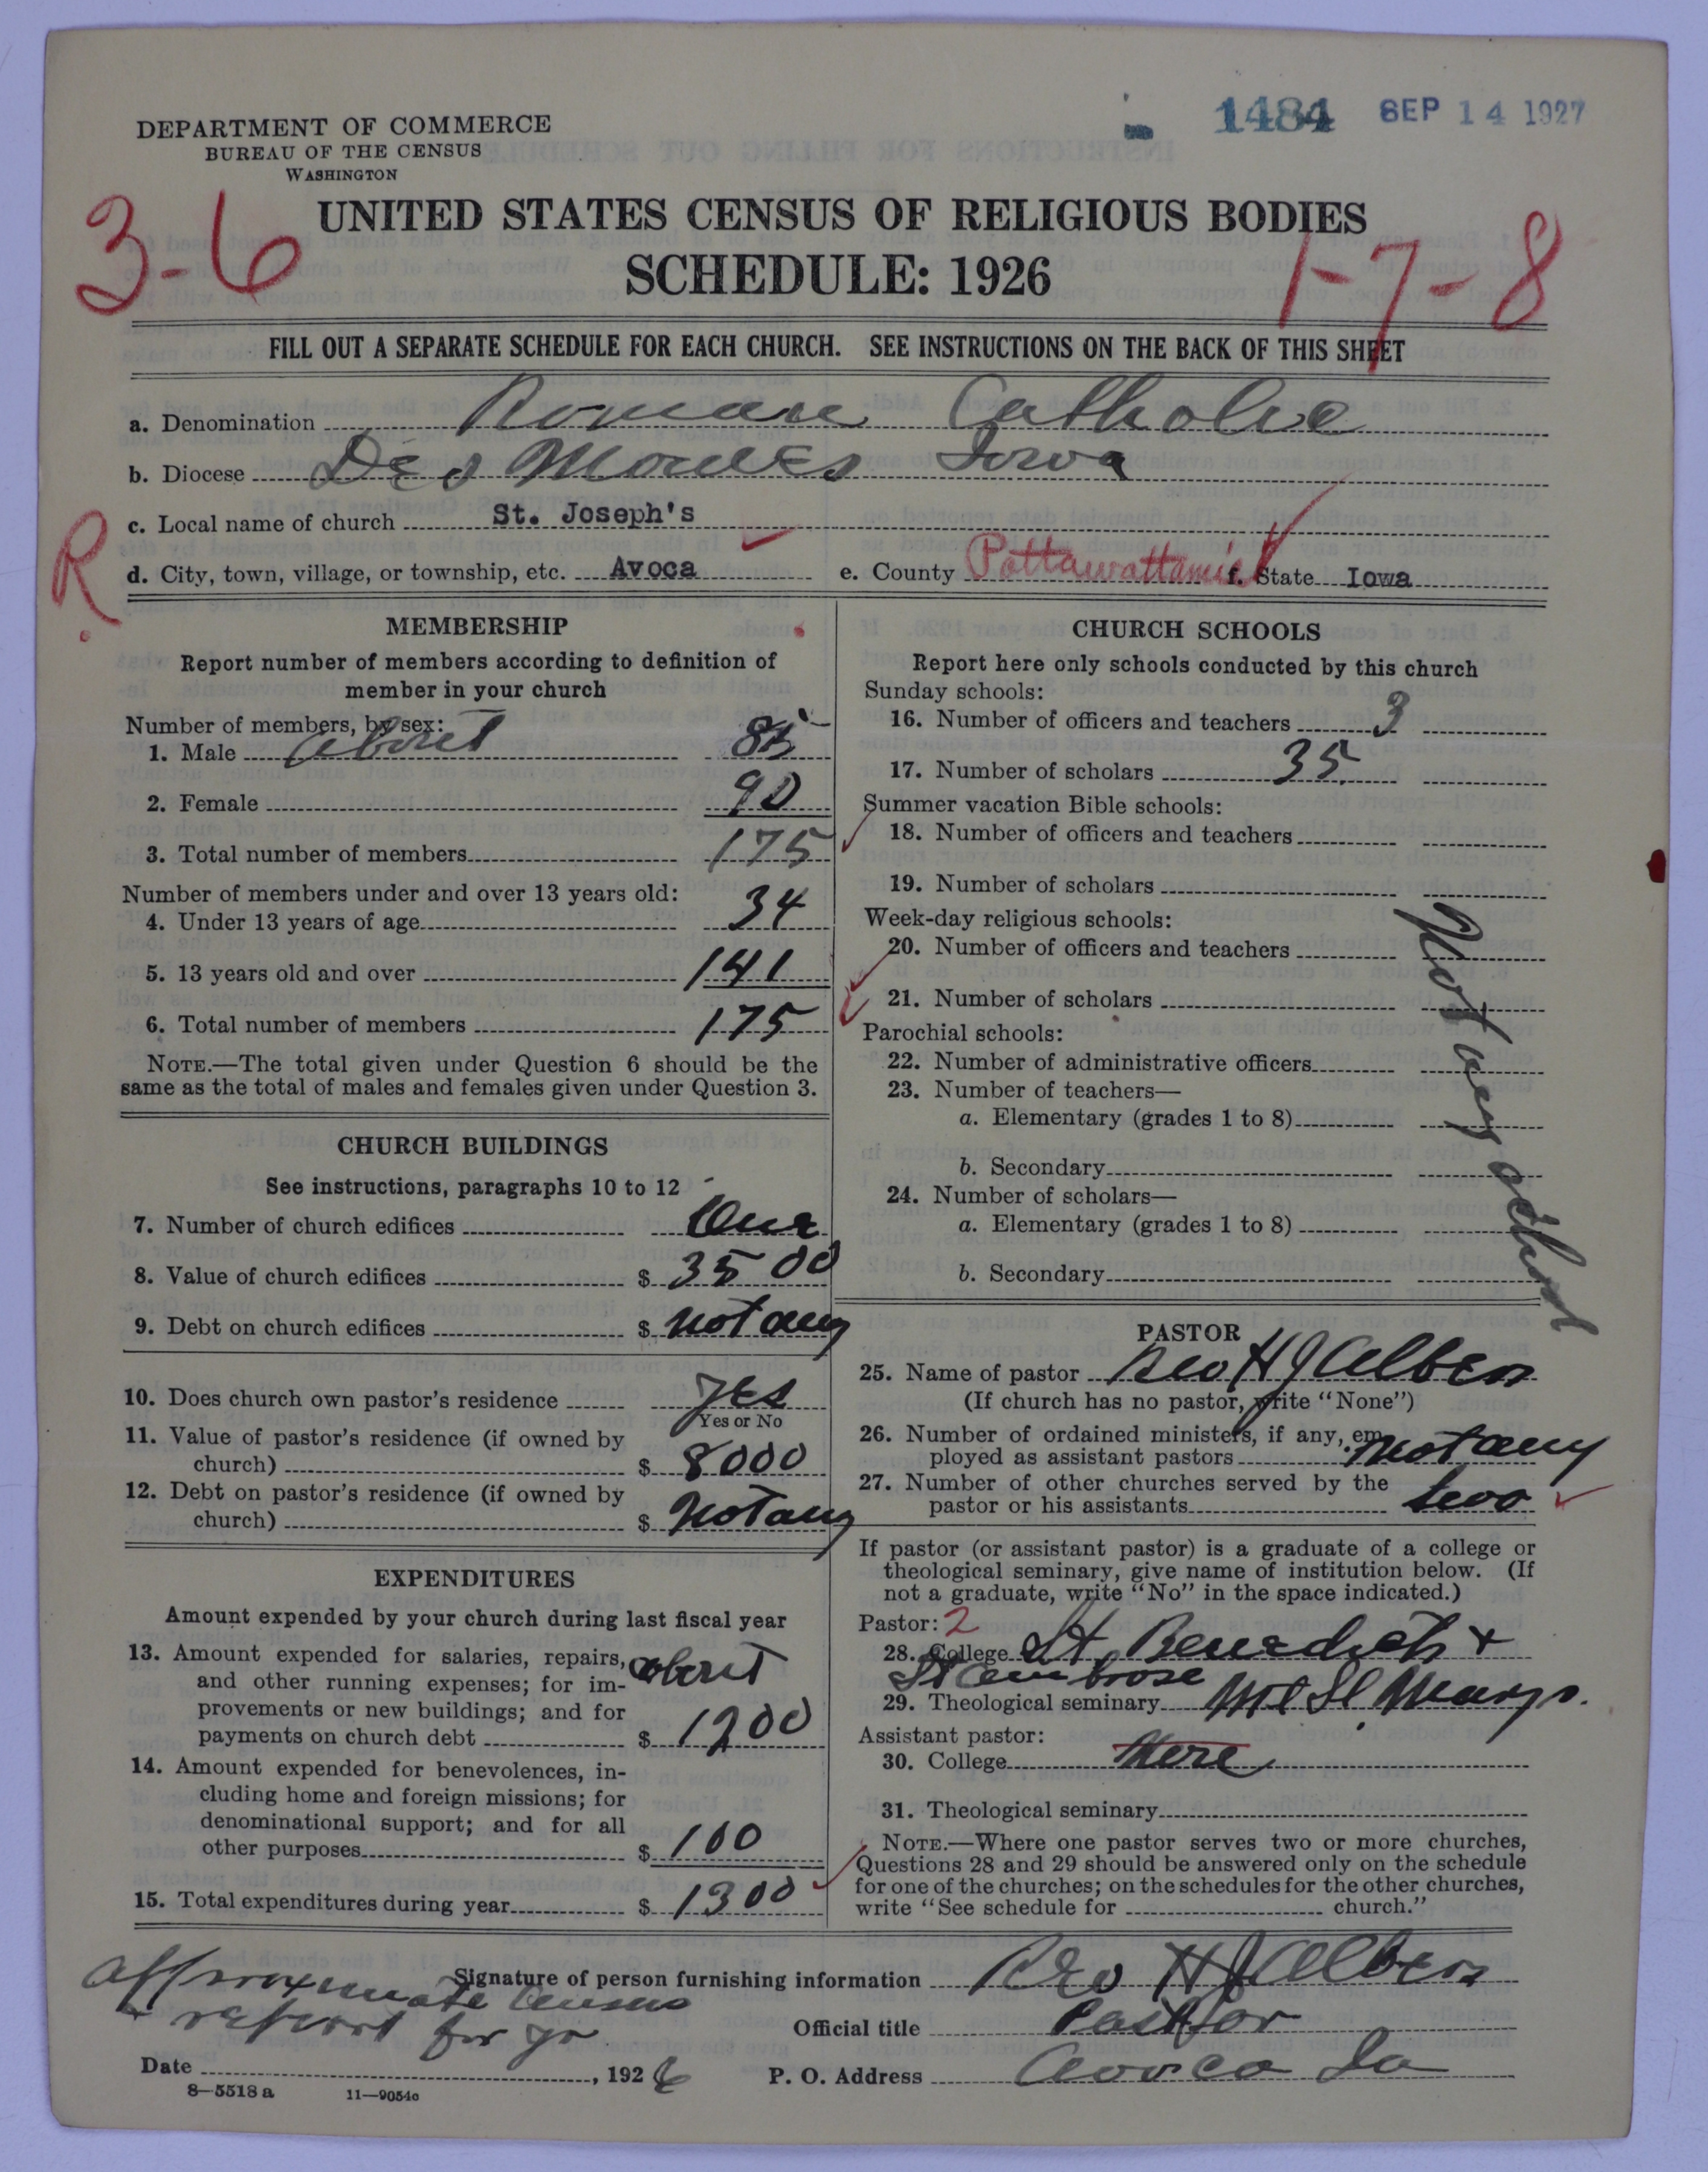 1484 SEP 14 1927
DEPARTMENT OF COMMERCE
BUREAU OF THE CENSUS
WASHINGTON
3-6
UNITED STATES CENSUS OF RELIGIOUS BODIES
SCHEDULE: 1926
1-7-8
FILL OUT A SEPARATE SCHEDULE FOR EACH CHURCH. SEE INSTRUCTIONS ON THE BACK OF THIS SHEET
a. Denomination Roman Catholic
b. Diocese Des Moines Iowa
c. Local name of church St. Joseph's
R
d. City, town, village, or township, etc. Avoca e. County Pottawattamie f. State Iowa
MEMBERSHIP
Report number of members according to definition of
member in your church
Number of members, by sex:
1. Male about 85
2. Female 90
3. Total number of members 175
Number of members under and over 13 years old:
4. Under 13 years of age 34
5. 13 years old and over 141
6. Total number of members 175
NOTE.—The total given under Question 6 should be the
same as the total of males and females given under Question 3.
CHURCH BUILDINGS
See instructions, paragraphs 10 to 12
7. Number of church edifices One
8. Value of church edifices $ 3500
9. Debt on church edifices $ not any
10. Does church own pastor's residence Yes
Yes or No
11. Value of pastor's residence (if owned by
church) $ 8000
12. Debt on pastor's residence (if owned by
church) $ Not any
EXPENDITURES
Amount expended by your church during last fiscal year
13. Amount expended for salaries, repairs, about
and other running expenses; for im-
provements or new buildings; and for
payments on church debt $ 1200
14. Amount expended for benevolences, in-
cluding home and foreign missions; for
denominational support; and for all
other purposes $ 100
15. Total expenditures during year $ 1300
CHURCH SCHOOLS
Report here only schools conducted by this church
Sunday schools:
16. Number of officers and teachers 3
17. Number of scholars 35
Summer vacation Bible schools:
18. Number of officers and teachers
19. Number of scholars
Week-day religious schools:
20. Number of officers and teachers
21. Number of scholars
Parochial schools:
22. Number of administrative officers
23. Number of teachers—
a. Elementary (grades 1 to 8)
b. Secondary
24. Number of scholars—
a. Elementary (grades 1 to 8)
b. Secondary
Not any school
PASTOR
25. Name of pastor Rev H J Alben
(If church has no pastor, write "None")
26. Number of ordained ministers, if any, em-
ployed as assistant pastors not any
27. Number of other churches served by the
pastor or his assistants two
If pastor (or assistant pastor) is a graduate of a college or
theological seminary, give name of institution below. (If
not a graduate, write "No" in the space indicated.)
Pastor: 2
28. College St. Benedicts +
St Ambrose
29. Theological seminary Mt St Marys.
Assistant pastor:
30. College
31. Theological seminary
NOTE.—Where one pastor serves two or more churches,
Questions 28 and 29 should be answered only on the schedule
for one of the churches; on the schedules for the other churches,
write "See schedule for church."
Signature of person furnishing information Rev H J Alben
approximate census
+ report for yr
Official title Pastor
Date , 1926
P. O. Address Avoca Ia
8—5518 a 11—9054c